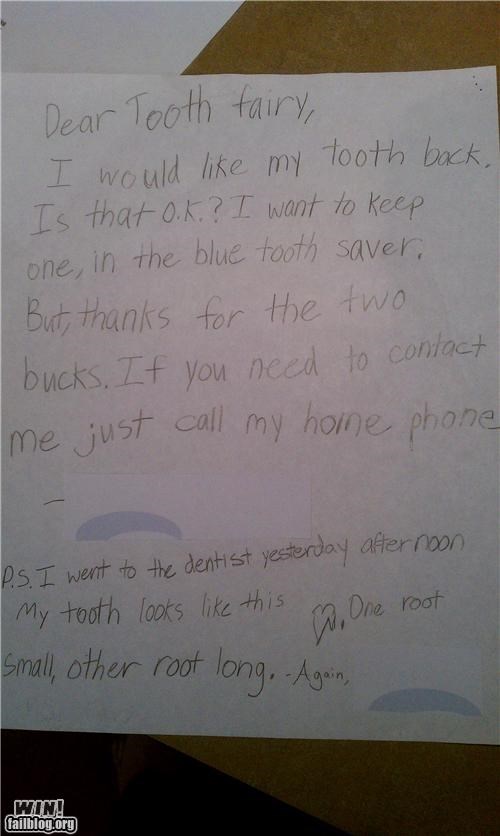 Dear Tooth fairy,
I would like my tooth back.
Is that O.K.? I want to keep
one, in the blue tooth saver.
But, thanks for the two
bucks. If you need to contact
me just call my home phone
—
P.S. I went to the dentist yesterday afternoon
My tooth looks like this . One root
small, other root long. - Again,
WIN!
failblog.org